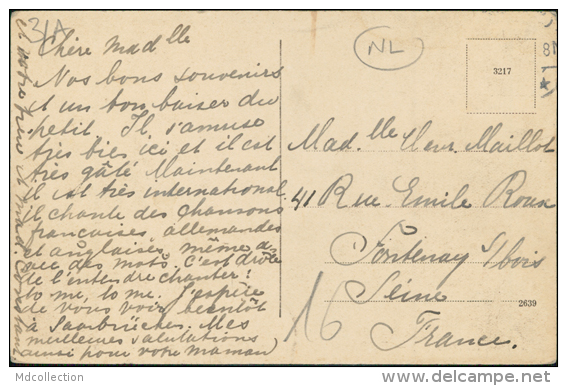 31A
Chère Mad lle
Nos bons souvenirs
et un bon baiser du
petit. Il s'amuse
tjrs bien ici et il est
très gâté. Maintenant
il est très international
il chante des chansons
françaises, allemandes
et anglaises, même a-
vec des mots. C'est drôle
de l'entendre chanter!
to me, to me. J'espère
de vous voir bientôt
à Saarbrücken. Mes
meilleures salutations,
aussi pour votre maman,
et votre frère et
NL
3217
Mad. lle Maillot
41 Rue Emile Roux
Fontenay s/bois
Seine
France.
16
2639
Mdcollection
www.delcampe.net